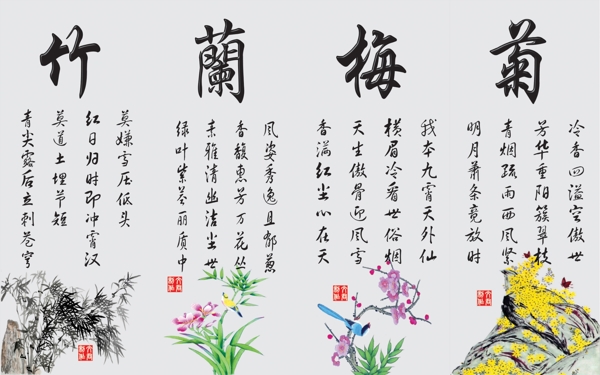 菊
冷香四溢空傲世
芳华重阳簇翠枝
青烟疏雨西风紧
明月萧条竟放时
梅
我本九霄天外仙
横眉冷看世俗烟
天生傲骨迎风雪
香满红尘心在天
蘭
风姿秀逸且郁葱
香馥惠芳万花丛
素雅清幽洁尘世
绿叶紫茎丽质中
竹
莫嫌雪压低头
红日归时即冲霄汉
莫道土埋节短
青尖露后立刺苍穹